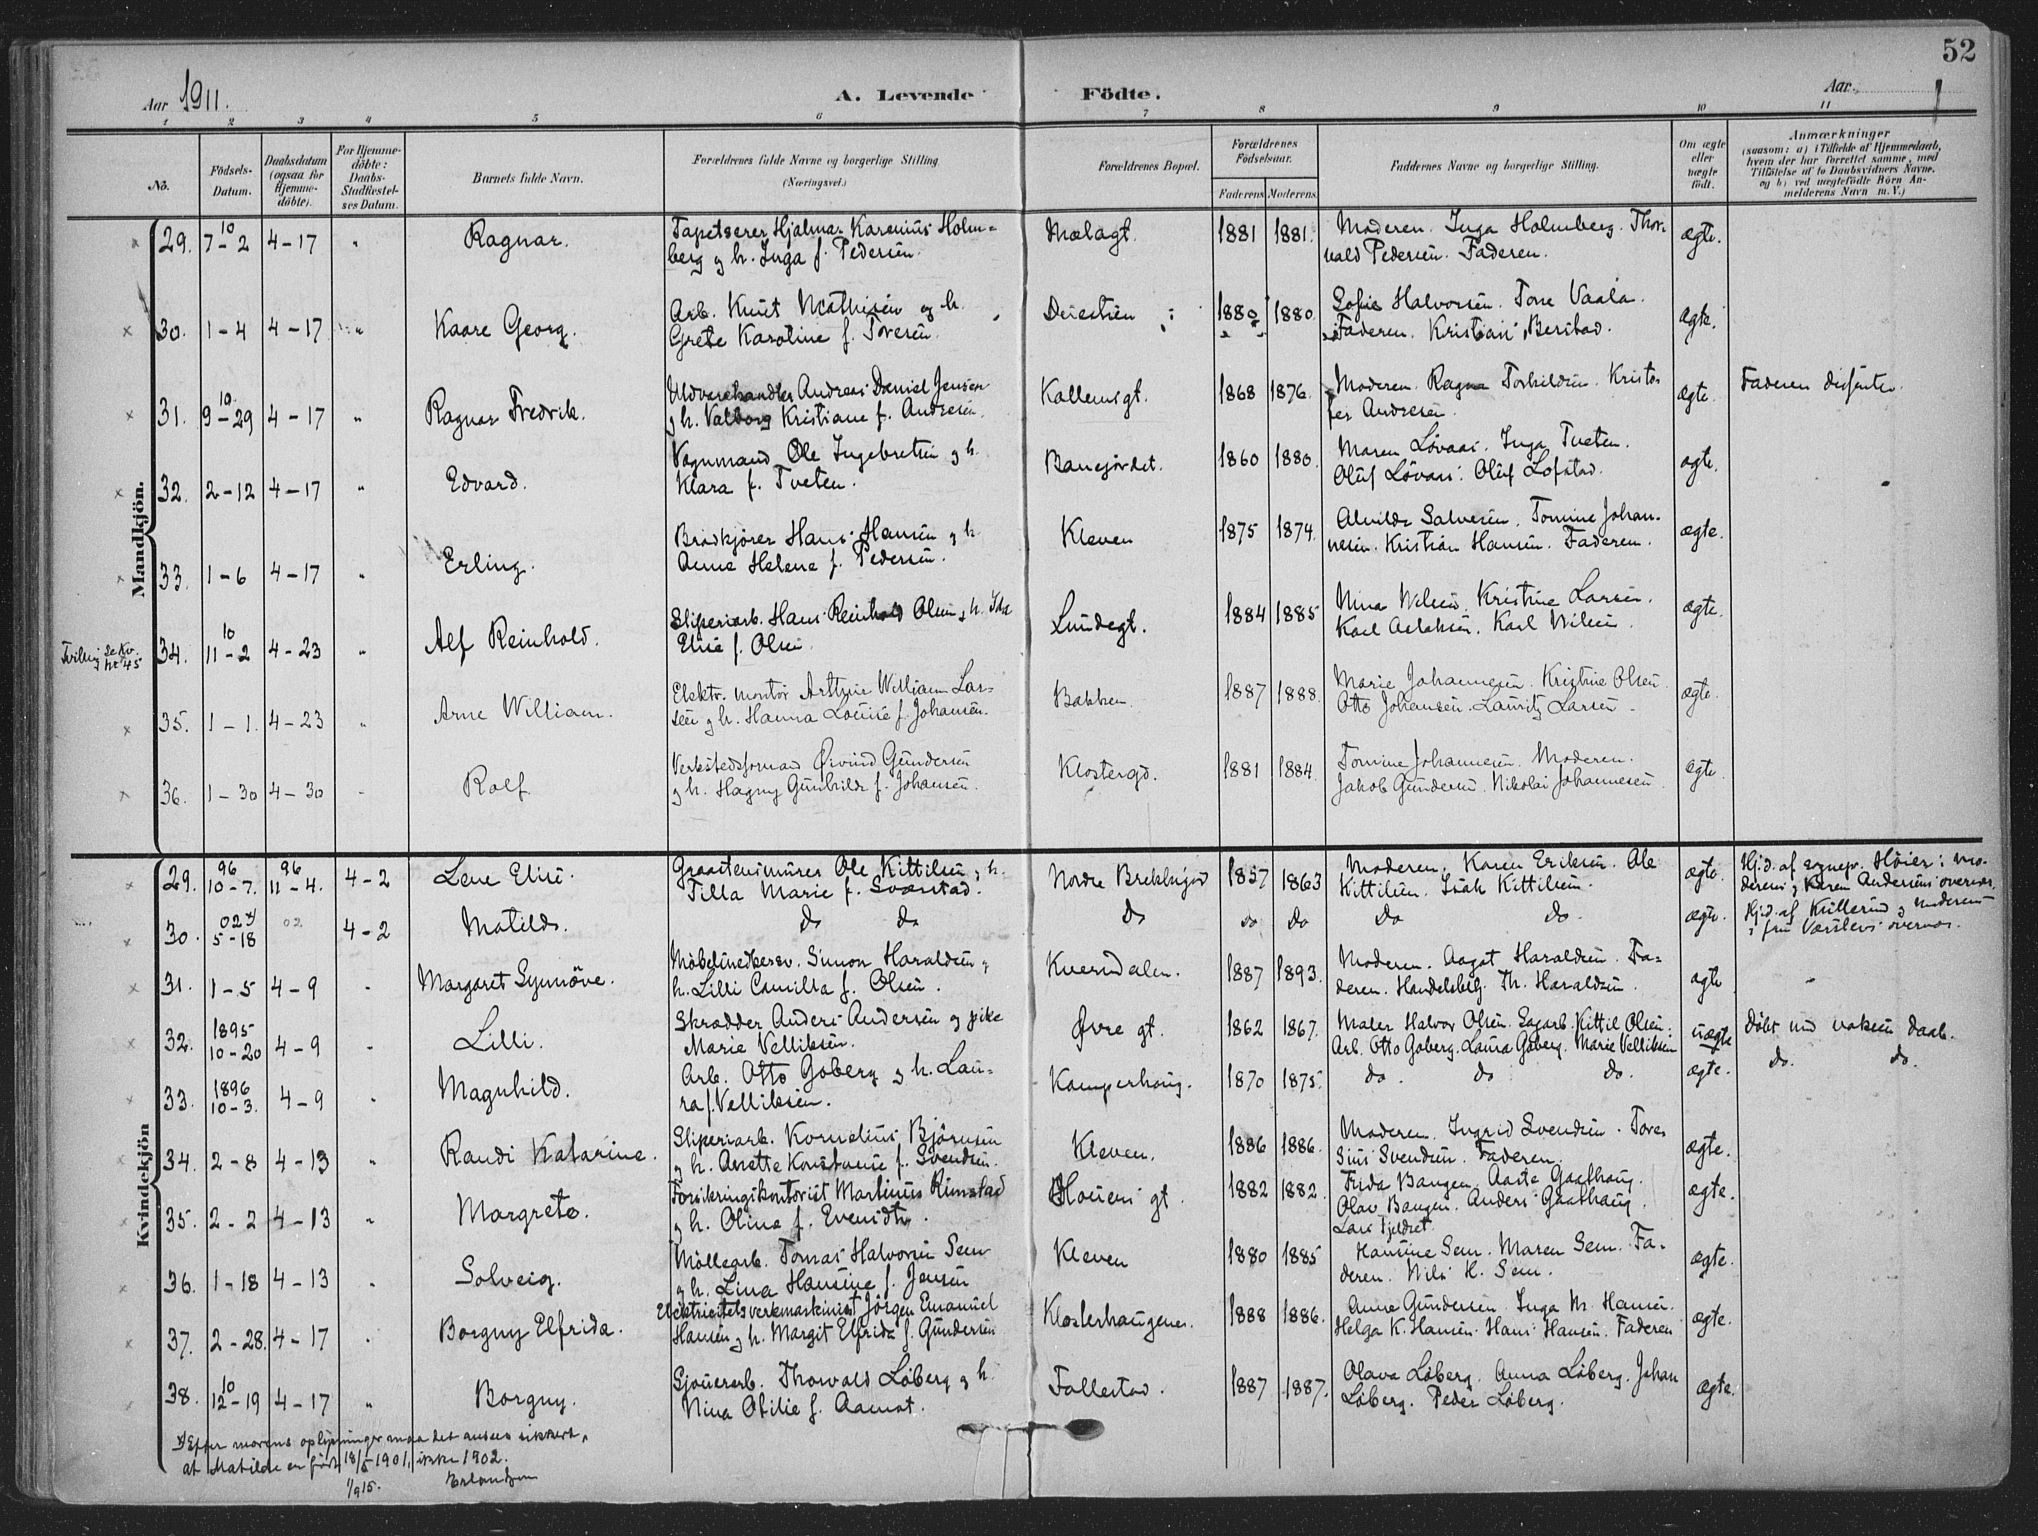 52
Aar 1911.
A. Levende Födte.
Aar 1
1 2 3 4 5 6 7 8 9 10 11
No.
Födsels-Datum.
Daabsdatum (ogsaa for Hjemme-döbte).
For Hjemme-döbte: Daabs-Stadfæstel-ses Datum.
Barnets fulde Navn.
Forældrenes fulde Navne og borgerlige Stilling
(Næringsvei.)
Forældrenes Bopæl.
Forældrenes Födselsaar.
Faderens Moderens
Faddernes Navne og borgerlige Stilling.
Om ægte eller uægte födt.
Anmærkninger
(saasom: a) i Tilfælde af Hjemmedaab, hvem der har forrettet samme, med Tilföielse af to Daabsvidners Navne, og b) ved uægtefödte Börn An-melderens Navn m. V.)
Mandkjön.
29. 7-10-2 4-17 " Ragnar. Tapetserer Hjalmar Karenius Holm=
berg g h. Inga f. Pedersen. Mælagt. 1881 1881. Moderen. Inga Holmberg. Thor-
vald Pedersen. Faderen. ægte.
30. 1-4 4-17 " Kaare Georg. Arb. Knut Mathisen og h.
Grete Karoline f. Toresen. 1880 1880. Sofie Halvorsen. Tone Vaala.
Faderen. Kristian Berstad. ægte.
31. 9-10-29 4-17 " Ragnar Fredrik. Uldvarehandler Andreas Daniel Jensen
g h. Valborg Kristiane f. Andresen. 1868 1876. Moderen. Ragna Torkildsen. Kristo
fer Andresen. ægte. Faderen dissenter.
32. 2-12 4-17 " Edvard. Vognmand Ole Ingebretsen g h.
Klara f. Tveten. Banejordet. 1860 1880. Maren Lövaas. Inga Tveten.
Oluf Lövaas. Oluf Lofstad. ægte.
33. 1-6 4-17 " Erling. Brödkjörer Hans Hansen g h
Anna Helene f. Pedersen. Kleven 1875 1874. Alvilde Salvesen. Tomine Johan-
nesen. Kristian Hansen. Faderen. ægte.
Tvilling se Kv. nr 45
34. 11-10-2 4-23 " Alf Reinhold. Sliperiarb. Hans Reinhold Olsen g h. Ida
Elise f. Olsen Lundegt. 1884 1885 Nina Nilsen. Kristine Larsen.
Karl Karl Nilsen. ægte.
35. 1-1. 4-23 " Arne William. Elektr. montör Arthur William Lar=
sen g h. Hanna Louise f. Johansen. Bakken 1887 1888. Marie Johannesen. Kristine Olsen.
Otto Johansen. Lauritz Larsen. ægte.
36. 1-30 4-30 - Rolf. Verkstedsformand Øivind Gundersen
g h. Hagny Gunhilde f. Johansen. Klostergd. 1881 1884. Tomine Johannesen. Moderen.
Jakob Gundersen. Nikolai Johannesen ægte.
Kvindekjön
29. 96 10-7. 96 11-4. 4-2 Lene Elise. Graastensmurer Ole Kittilsen g h.
Tilla Marie f. Sværstad. Nordre Brekkejord 1857 1863 Moderen. Karen Eriksen. Ole
Kittilsen. Isak Kittilsen. ægte. Hj.d. af sognepr. Höier: mo-
deren g Karen Andersens overvær.
30. 02 x) 5-18 02 4-2 Matilde. do do do do do do do. ægte. Hj.d. af Killerud g moderens
g fru overvær.
31. 1-5 4-9 - Margaret Synnöve. Simon Haraldsen g
h. Lilli Camilla f. Olsen. Kverndalen. 1887 1893. Moderen. Aagot Haraldsen. Fa-
deren. Th. Haraldsen. ægte
32. 1895 10-20 4-9 - Lilli. Skrædder Anders Andersen og pike
Marie Velliksen. Øvre gt. 1862 1867. Maler Halvor Olsen. Sagarb. Kittil Olsen.
Arb. Otto Goberg. Laura Goberg. Marie Velliksen uægte Döbt ved voksen daab.
33. 1896 10-3. 4-9 - Magnhild. Arb. Otto Goberg g h. Lau=
ra f. Velliksen. Kamperhaug. 1870 1875. do. do do. ægte. do. do.
34. 2-8 4-13 " Randi Katarine. Sliperiarb. Kornelius Björnsen
g h. Anette Konstanse f. Svendsen. Kleven. 1886 1886. Moderen. Ingrid Svendsen. Tore
Svendsen. Faderen. ægte.
35. 2-2 4-13 " Margrete. Forsikringskontorist Martinus Rimstad
g h. Olina f. Houens gt. 1882 1882. Frida Bangen. Aaste Gaathaug.
Olav Bangen. Anders Gaathaug.
Lars Fjeldset. ægte.
36. 1-18 4-13 " Solveig. Möllearb. Tomas Halvorsen Sem
g h. Lina Hansine f. Jensen Kleven 1880 1885 Hansine Sem. Maren Sem. Fa-
deren. Nils H. Sem. ægte.
37. 2-28. 4-17 " Borgny Elfrida. Elektricitetsverkmaskinist Jörgen Emanuel
Hansen g h. Margit Elfrida f. Gundersen Klosterhaugene. 1888 1886. Anna Gundersen. Inga M. Hansen.
Helga K. Hansen. Hans Hansen. Faderen ægte.
38. 12-10-19 4-17 " Borgny. Sjouerarb. Thorvald Löberg g h.
Nina Otilie f. Aamot. Follestad. 1887 1887. Olava Löberg. Anna Löberg. Johan
Löberg. Peder Löberg. ægte.
x) Efter morens oplysninger maa det ansees sikkert,
at Matilde er födt 18/5 1901, ikke 1902.
1/9 15. Erlandsen